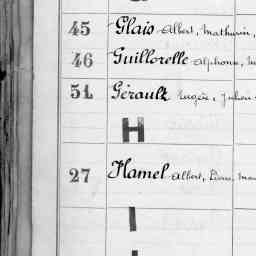 45 Glais Albert, Mathurin,
46 Guillorelle Alphonse, M
51 Gérault Eugène, Julien
H
27 Hamel Albert, Pierre, Mar
I